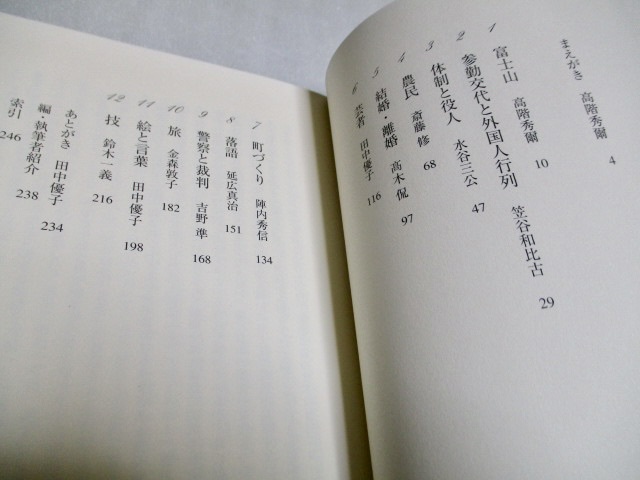 まえがき 高階秀爾 4
1 富士山 高階秀爾 10
2 参勤交代と外国人行列 笠谷和比古 29
3 体制と役人 水谷三公 47
4 農民 斎藤修 68
5 結婚・離婚 高木侃 97
6 芸者 田中優子 116
7 町づくり 陣内秀信 134
8 落語 延広真治 151
9 警察と裁判 吉野準 168
10 旅 金森敦子 182
11 絵と言葉 田中優子 198
12 技 鈴木一義 216
あとがき 田中優子 234
編・執筆者紹介 238
索引 246